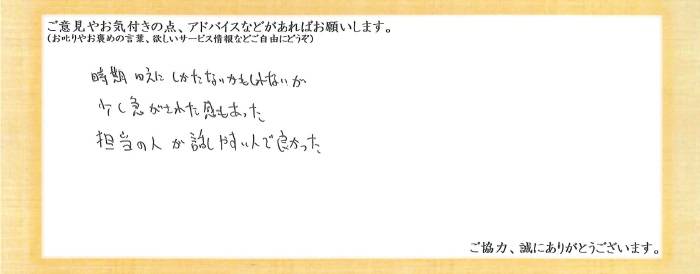 ご意見やお気付きの点、アドバイスなどがあればお願いします。
(お叱りやお褒めの言葉、欲しいサービス情報などご自由にどうぞ)
時期ゆえに しかたないかもしれないが
少し急がされた感もあった
担当の人が話しやすい人で良かった
ご協力、誠にありがとうございます。